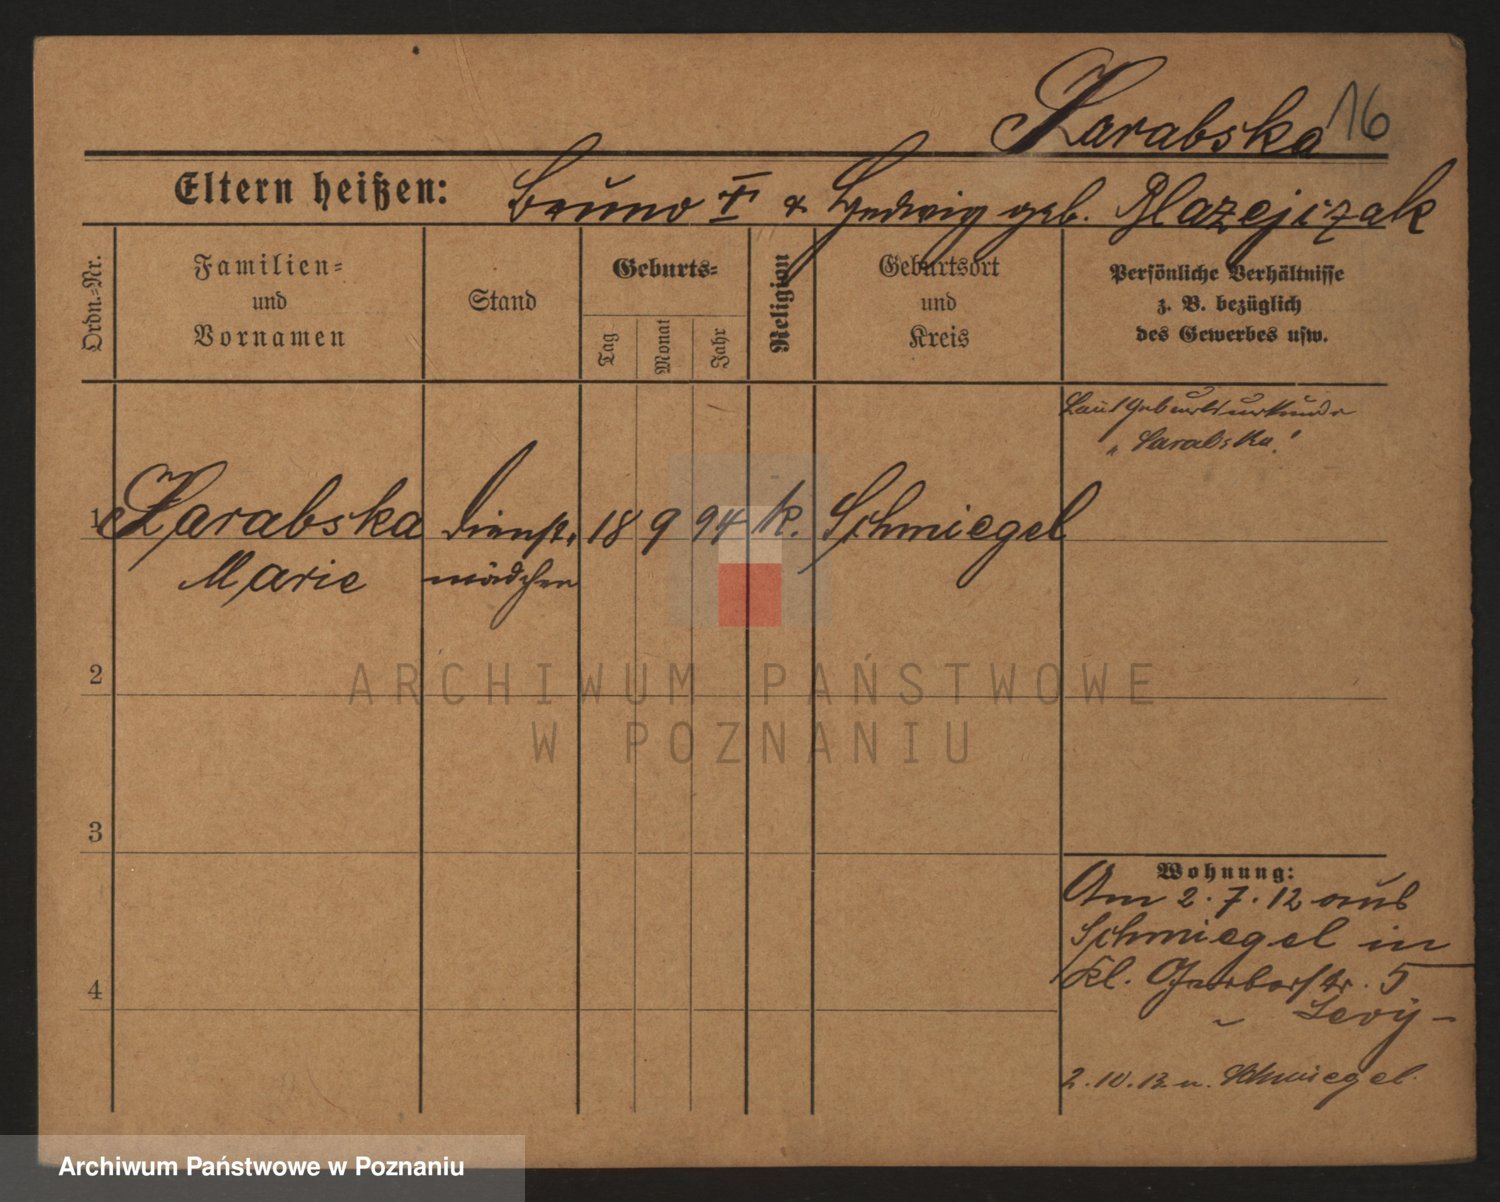 Zarabska 16
Eltern heißen: Bruno † & Hedwig geb. Blazejczak
Ordn.-Nr.
Familien-
und
Vornamen
Stand
Geburts-
Tag
Monat
Jahr
Religion
Geburtsort
und
Kreis
Persönliche Verhältnisse
z. B. bezüglich
des Gewerbes usw.
Laut Geburtsurkunde
"Sarabska".
1 Zarabska Dienst- 18 9 94 k. Schmiegel
Marie mädchen
2
3
4
Wohnung:
Am 2.7.12 aus
Schmiegel in
Kl. Gerberstr. 5
- Levy -
2.10.12 n. Schmiegel.
ARCHIWUM PAŃSTWOWE
W POZNANIU
Archiwum Państwowe w Poznaniu